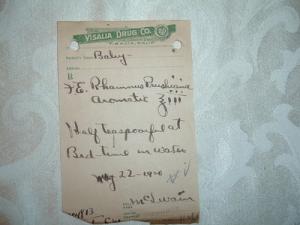 VISALIA DRUG CO.
VISALIA, CALIF.
Baby
ADDRESS
R
F.E. Rhamnus Purshiana
Aromatic ʒiii
Half teaspoonful at
Bed-time in water
May 22-1920
McSwain